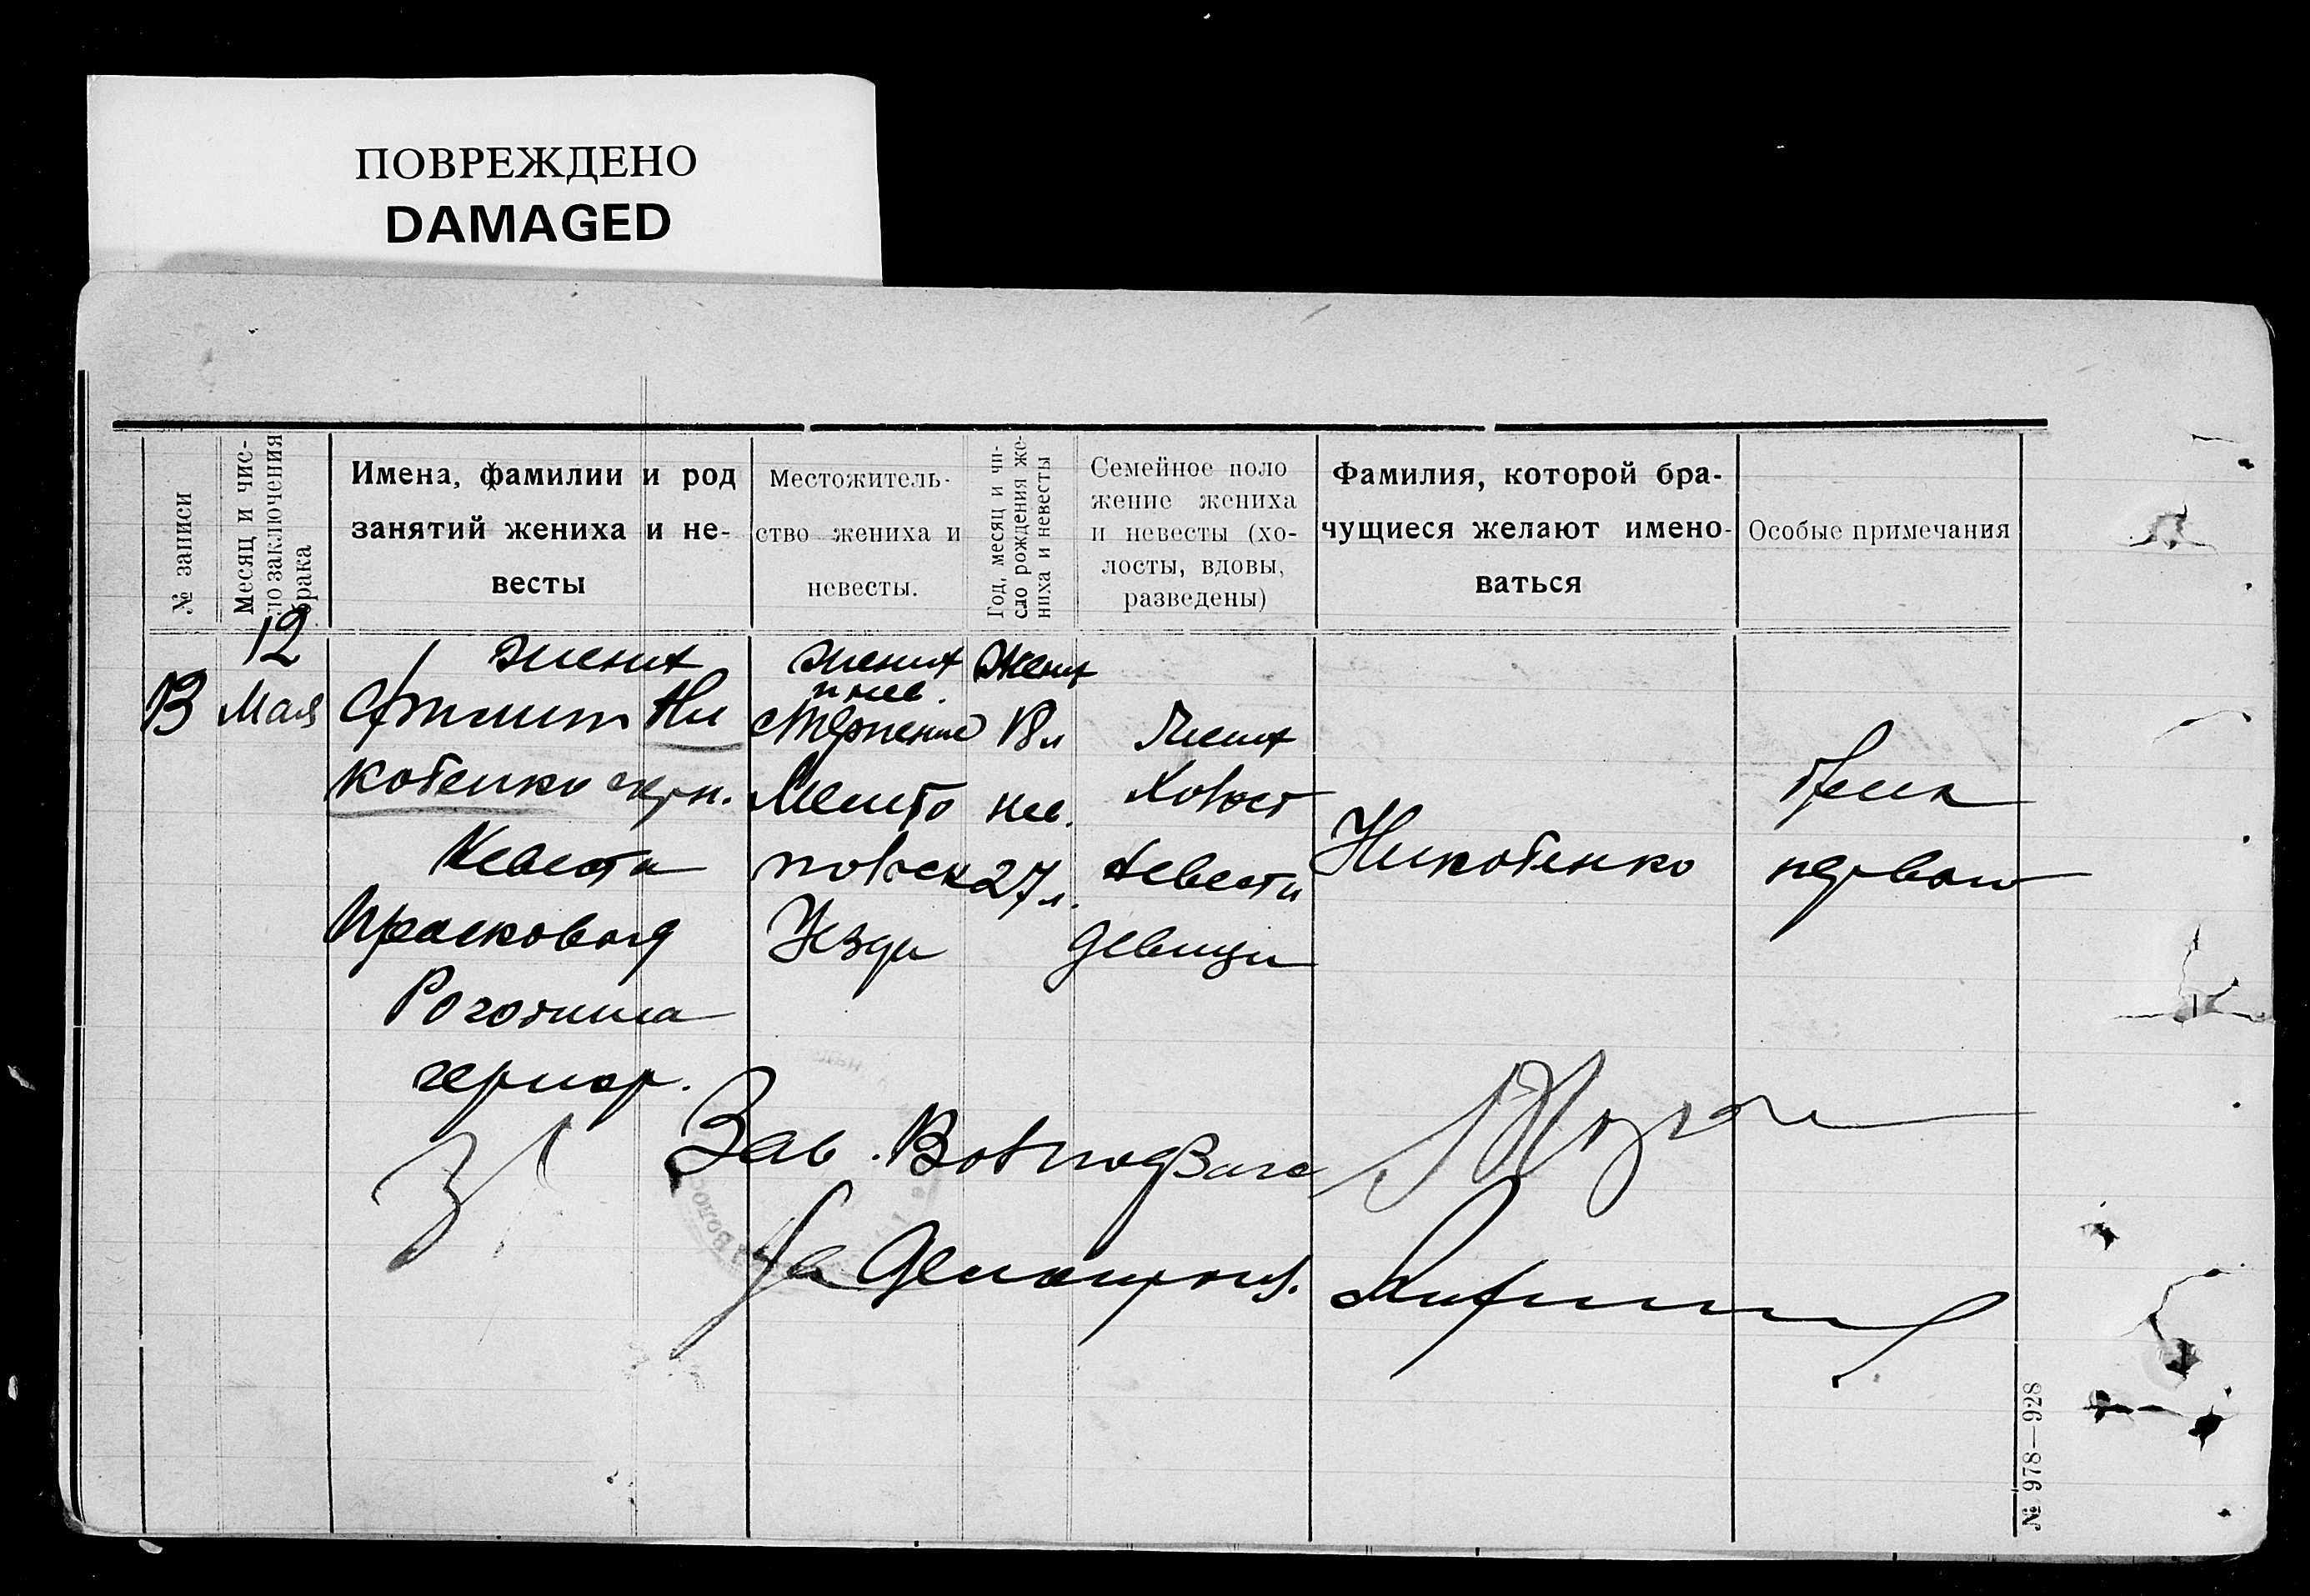 ПОВРЕЖДЕНО
DAMAGED
№ записи
Месяц и чис-
ло заключения
брака
Имена, фамилии и род
занятий жениха и не-
весты
Местожитель-
ство жениха и
невесты.
Год, месяц и чи-
сло рождения же-
ниха и невесты
Семейное поло
жение жениха
и невесты (хо-
лосты, вдовы,
разведены)
Фамилия, которой бра-
чущиеся желают имено-
ваться
Особые примечания
13
12
Мая
жених
Ни
котенко
Невеста
Прасковья
Рогожина
жених
и нев.
Мелито
польск
Уезда
Жених
18 л
нев.
27 л.
Жених
Холост
Невеста
девица
Никотенко
брак
первый
Зав. Волподзагс
За Делопроизв.
№ 978—928